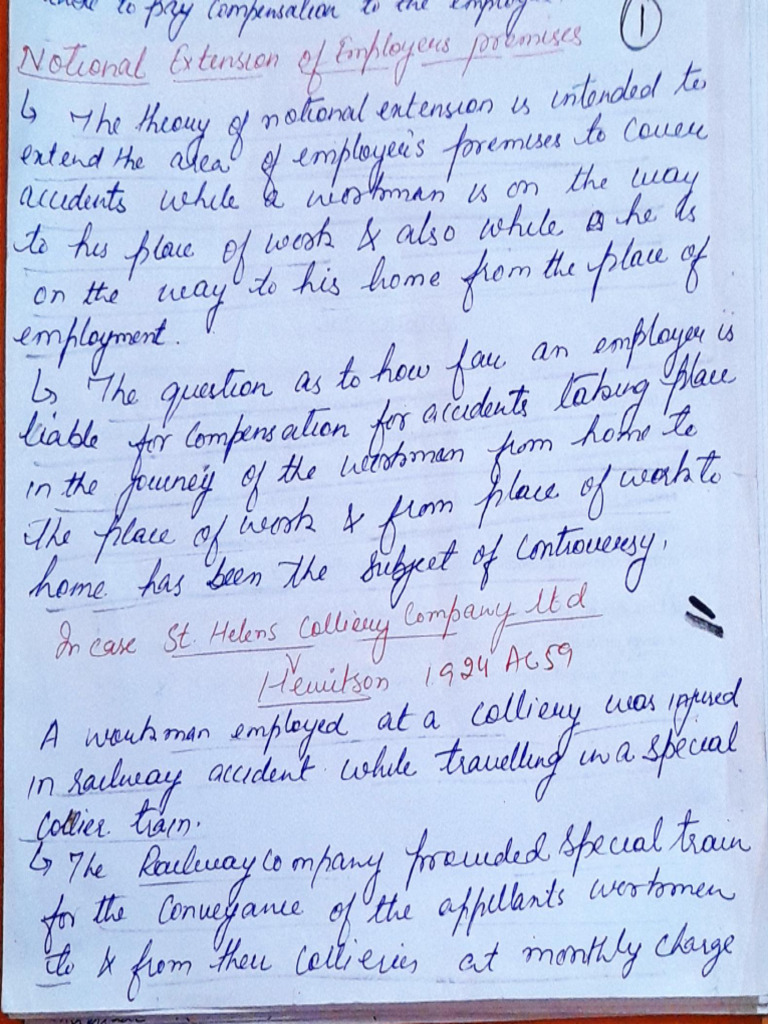 to pay compensation to the employ
1
Notional Extension of Employers premises
↳ The theory of notional extension is intended to
extend the area of employer's premises to cover
accidents while a workman is on the way
to his place of work & also while he is
on the way to his home from the place of
employment.
↳ The question as to how far an employer is
liable for compensation for accidents taking place
in the journey of the workman from home to
the place of work & from place of work to
home has been the subject of controversy.
In case St. Helens Colliery Company ltd
V
Hewitson 1924 AC 59
A workman employed at a colliery was injured
in railway accident while travelling in a special
collier train.
↳ The Railway company provided special train
for the conveyance of the appellants workmen
to & from their collieries at monthly charge